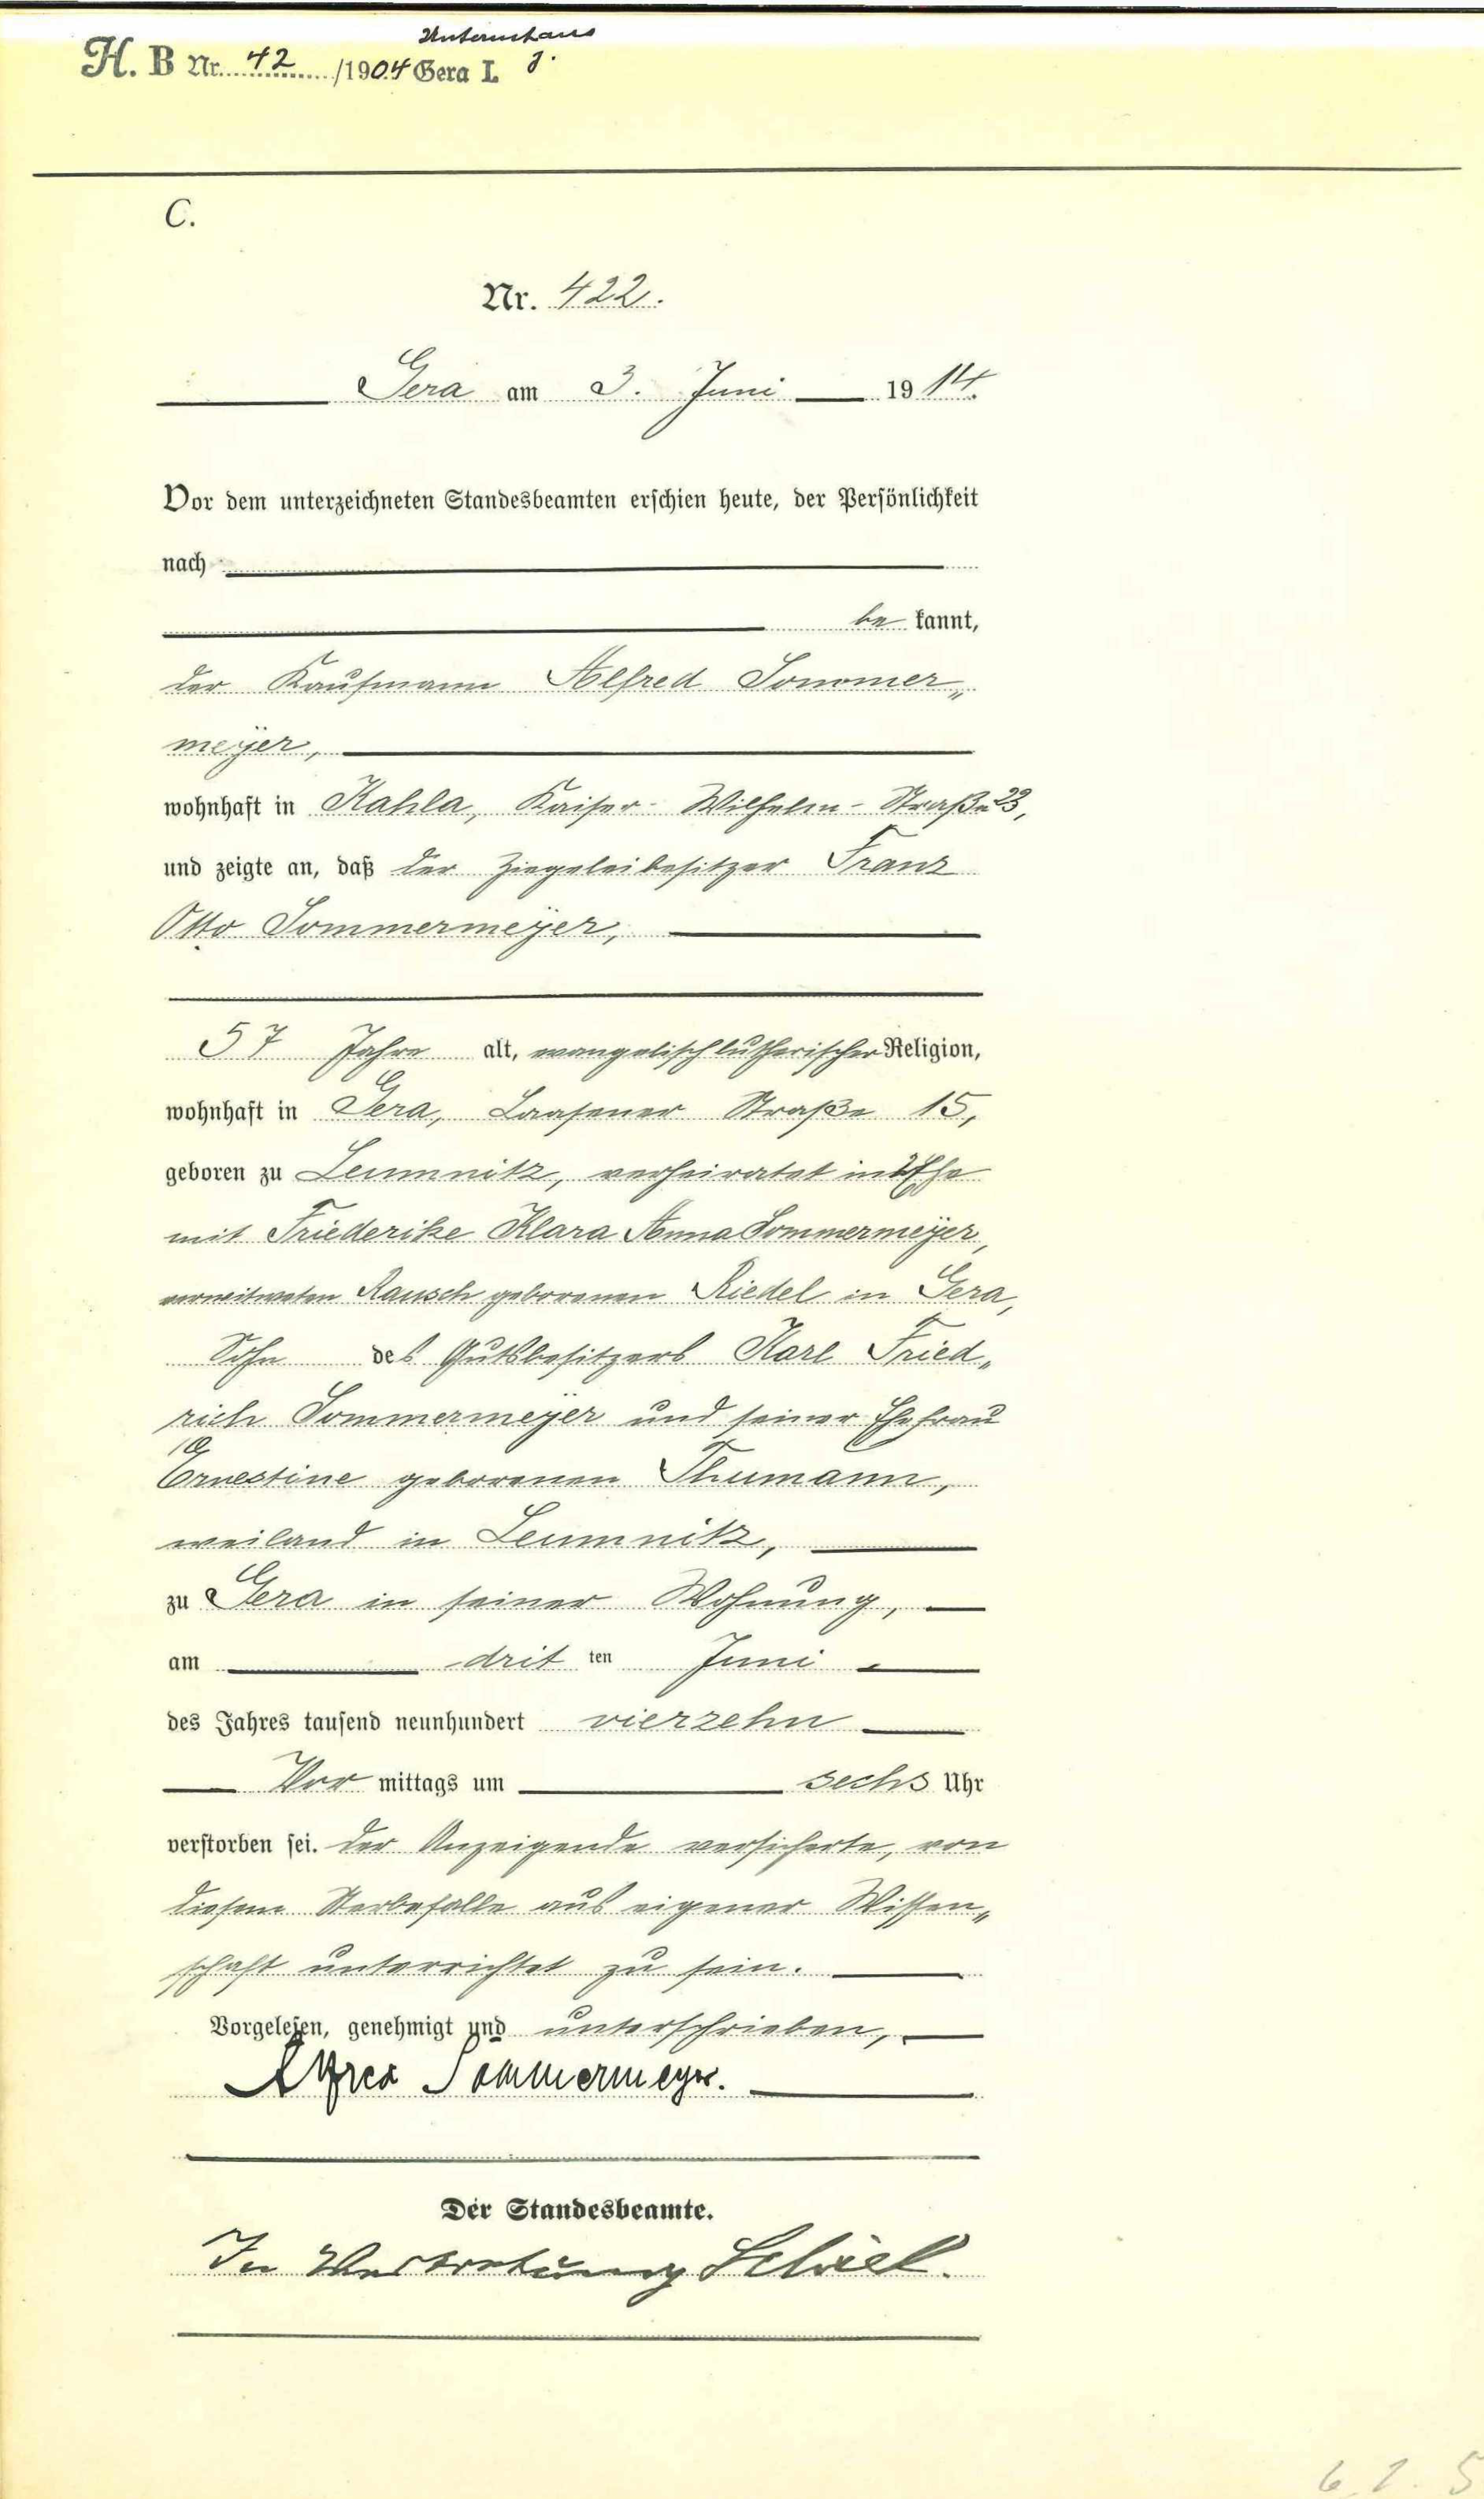 Untermhaus
H. B Nr. 42 /1904 Gera I.
C.
Nr. 422.
Gera am 3. Juni 1914.
Vor dem unterzeichneten Standesbeamten erschien heute, der Persönlichkeit
nach
be kannt,
der Kaufmann Alfred Sommer„
meyer,
wohnhaft in Kahla, Kaiser-Wilhelm-Straße 23,
und zeigte an, daß der Ziegeleibesitzer Franz
Otto Sommermeyer,
57 Jahre alt, evangelisch lutherischer Religion,
wohnhaft in Gera, Laasener Straße 15,
geboren zu Leumnitz, verheiratet in 2. Ehe
mit Friederike Klara Anna Sommermeyer,
verwitweten Rausch geborenen Riedel in Gera,
Sohn des Gutsbesitzers Karl Fried„
rich Sommermeyer und seiner Ehefrau
Ernestine geborenen Thumann,
weiland in Leumnitz,
zu Gera in seiner Wohnung,
am dritten Juni
des Jahres tausend neunhundert vierzehn
Vor mittags um sechs Uhr
verstorben sei. Der Anzeigende versicherte, von
diesem Sterbefalle aus eigener Wissen„
schaft unterrichtet zu sein.
Vorgelesen, genehmigt und unterschrieben,
Alfred Sommermeyer.
Der Standesbeamte.
In Vertretung
6.2.5